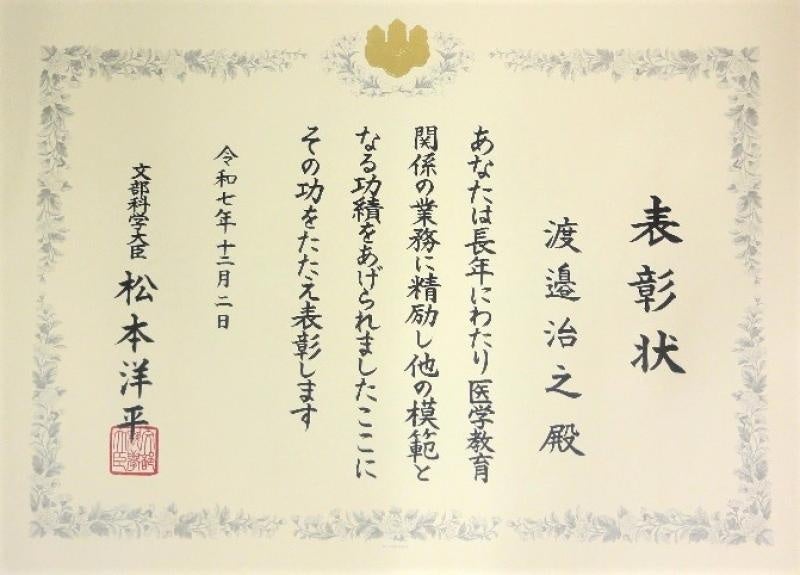 表彰状
渡邉治之殿
あなたは長年にわたり医学教育
関係の業務に精励し他の模範と
なる功績をあげられましたここに
その功をたたえ表彰します
令和七年十二月二日
文部科学大臣 松本洋平